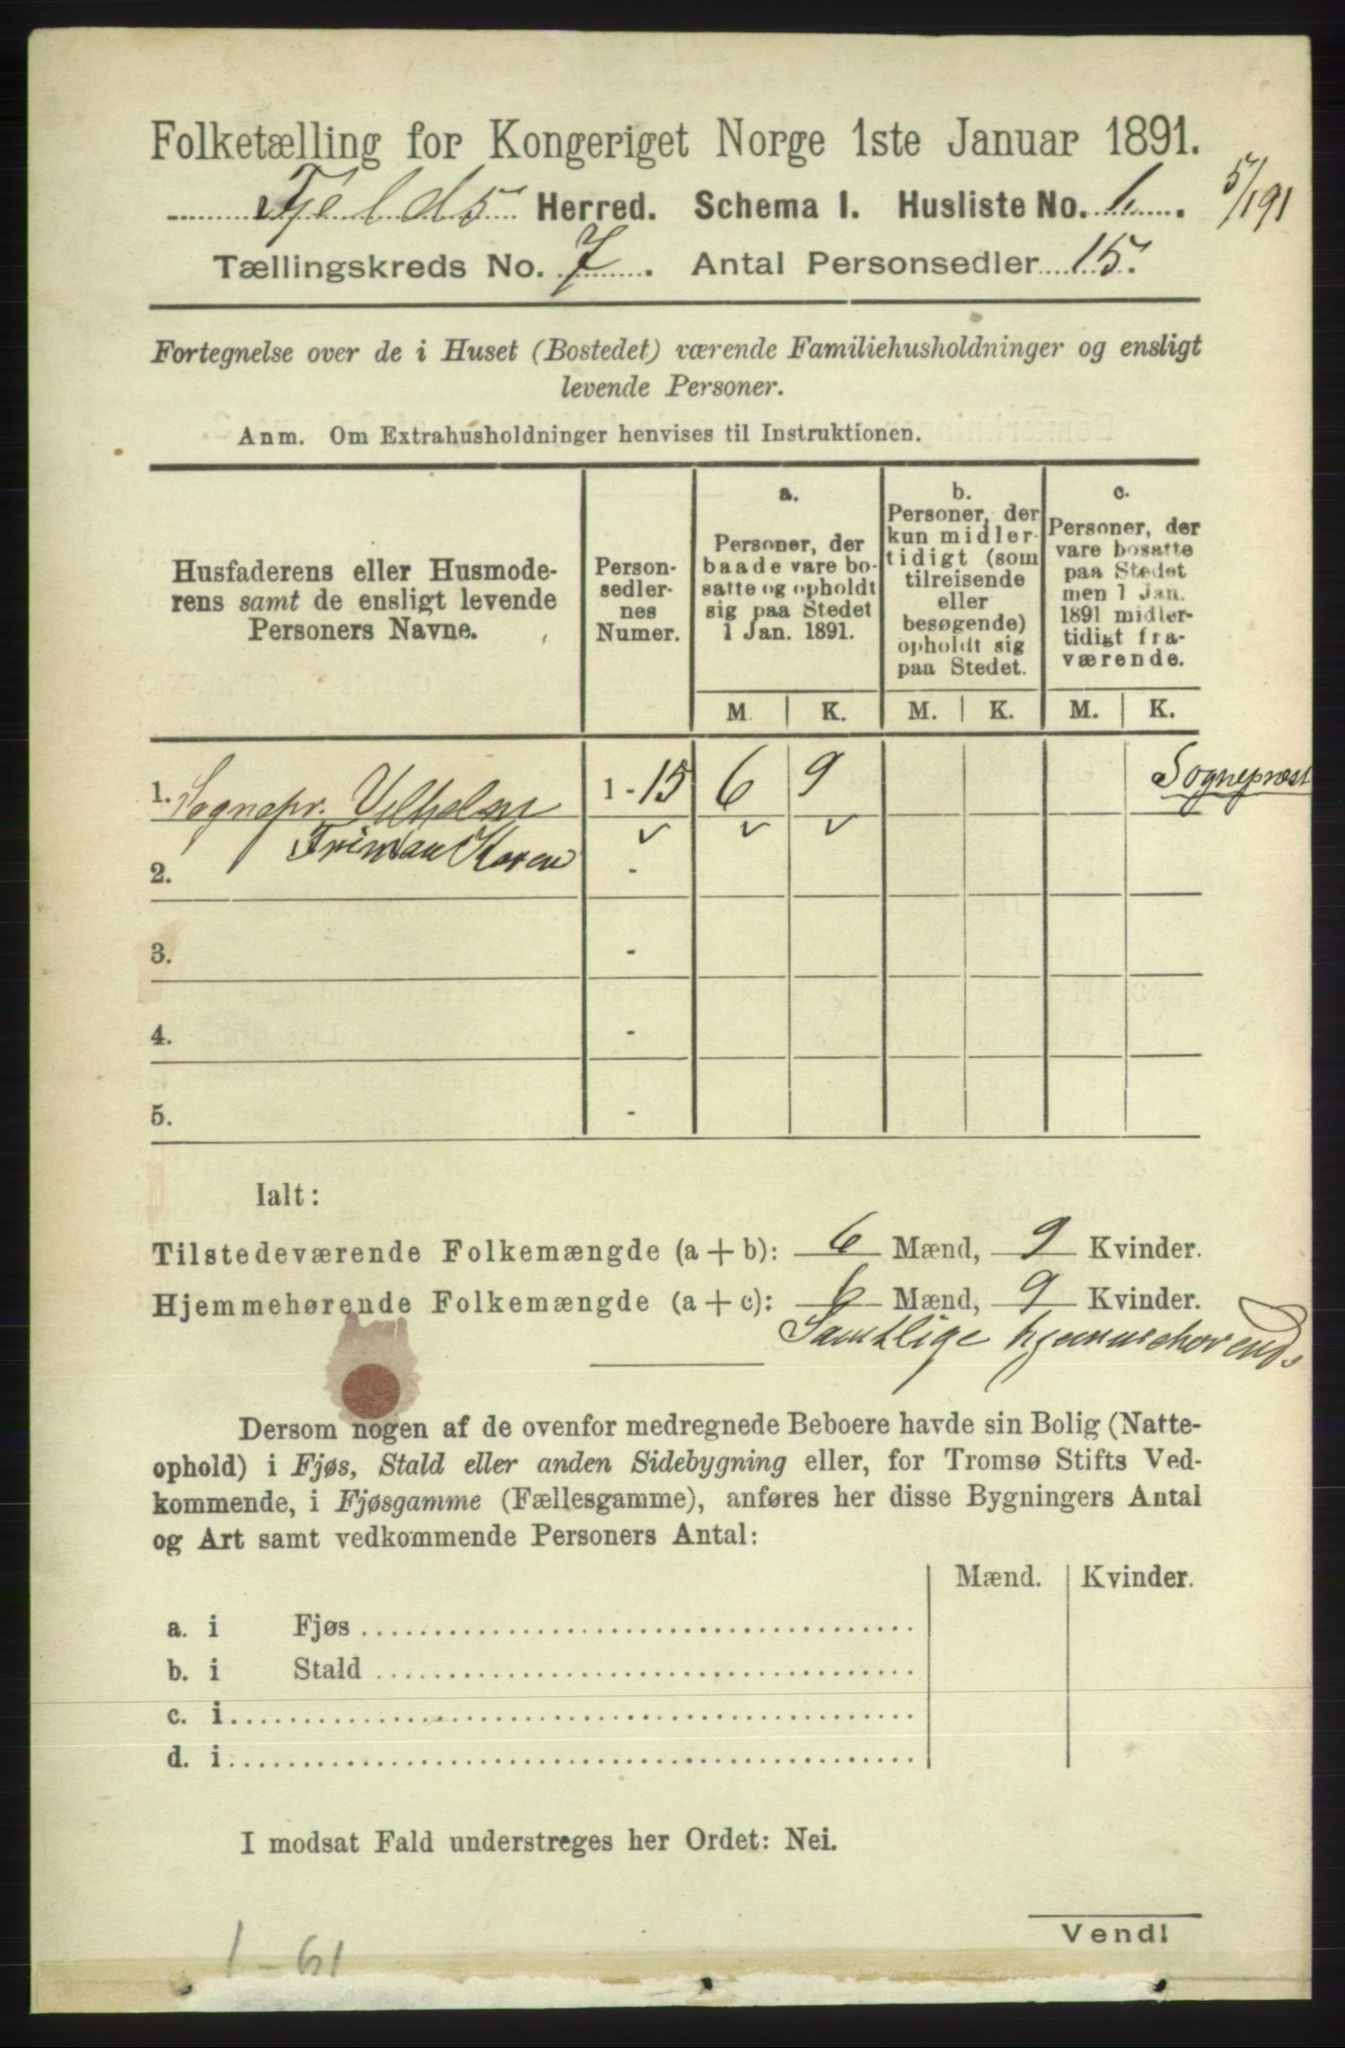 Folketælling for Kongeriget Norge 1ste Januar 1891.
Herred. Schema I. Husliste No. 1. 5/1 91
Tællingskreds No. 7. Antal Personsedler 15.
Fortegnelse over de i Huset (Bostedet) værende Familiehusholdninger og ensligt
levende Personer.
Anm. Om Extrahusholdninger henvises til Instruktionen.
Husfaderens eller Husmode-
rens samt de ensligt levende
Personers Navne.
Person-
sedler-
nes
Numer.
a.
Personer, der
baade vare bo-
satte og opholdt
sig paa Stedet
1 Jan. 1891.
b.
Personer, der
kun midler-
tidigt (som
tilreisende
eller
besøgende)
opholdt sig
paa Stedet.
c.
Personer, der
vare bosatte
paa Stedet
men 1 Jan.
1891 midler-
tidigt fra-
værende.
M. K. M. K. M. K.
1. Sognepr. Vilhelm 1 - 15 6 9 Sogneprest
✓ ✓ ✓
Karen
2. -
3. -
4. -
5. -
Ialt:
Tilstedeværende Folkemængde (a + b): 6 Mænd, 9 Kvinder.
Hjemmehørende Folkemængde (a + c): 6 Mænd, 9 Kvinder.
Samtlige hjemmehørende
Dersom nogen af de ovenfor medregnede Beboere havde sin Bolig (Natte-
ophold) i Fjøs, Stald eller anden Sidebygning eller, for Tromsø Stifts Ved-
kommende, i Fjøsgamme (Fællesgamme), anføres her disse Bygningers Antal
og Art samt vedkommende Personers Antal:
Mænd. Kvinder.
a. i Fjøs
b. i Stald
c. i
d. i
I modsat Fald understreges her Ordet: Nei.
Vend!
1 - 61